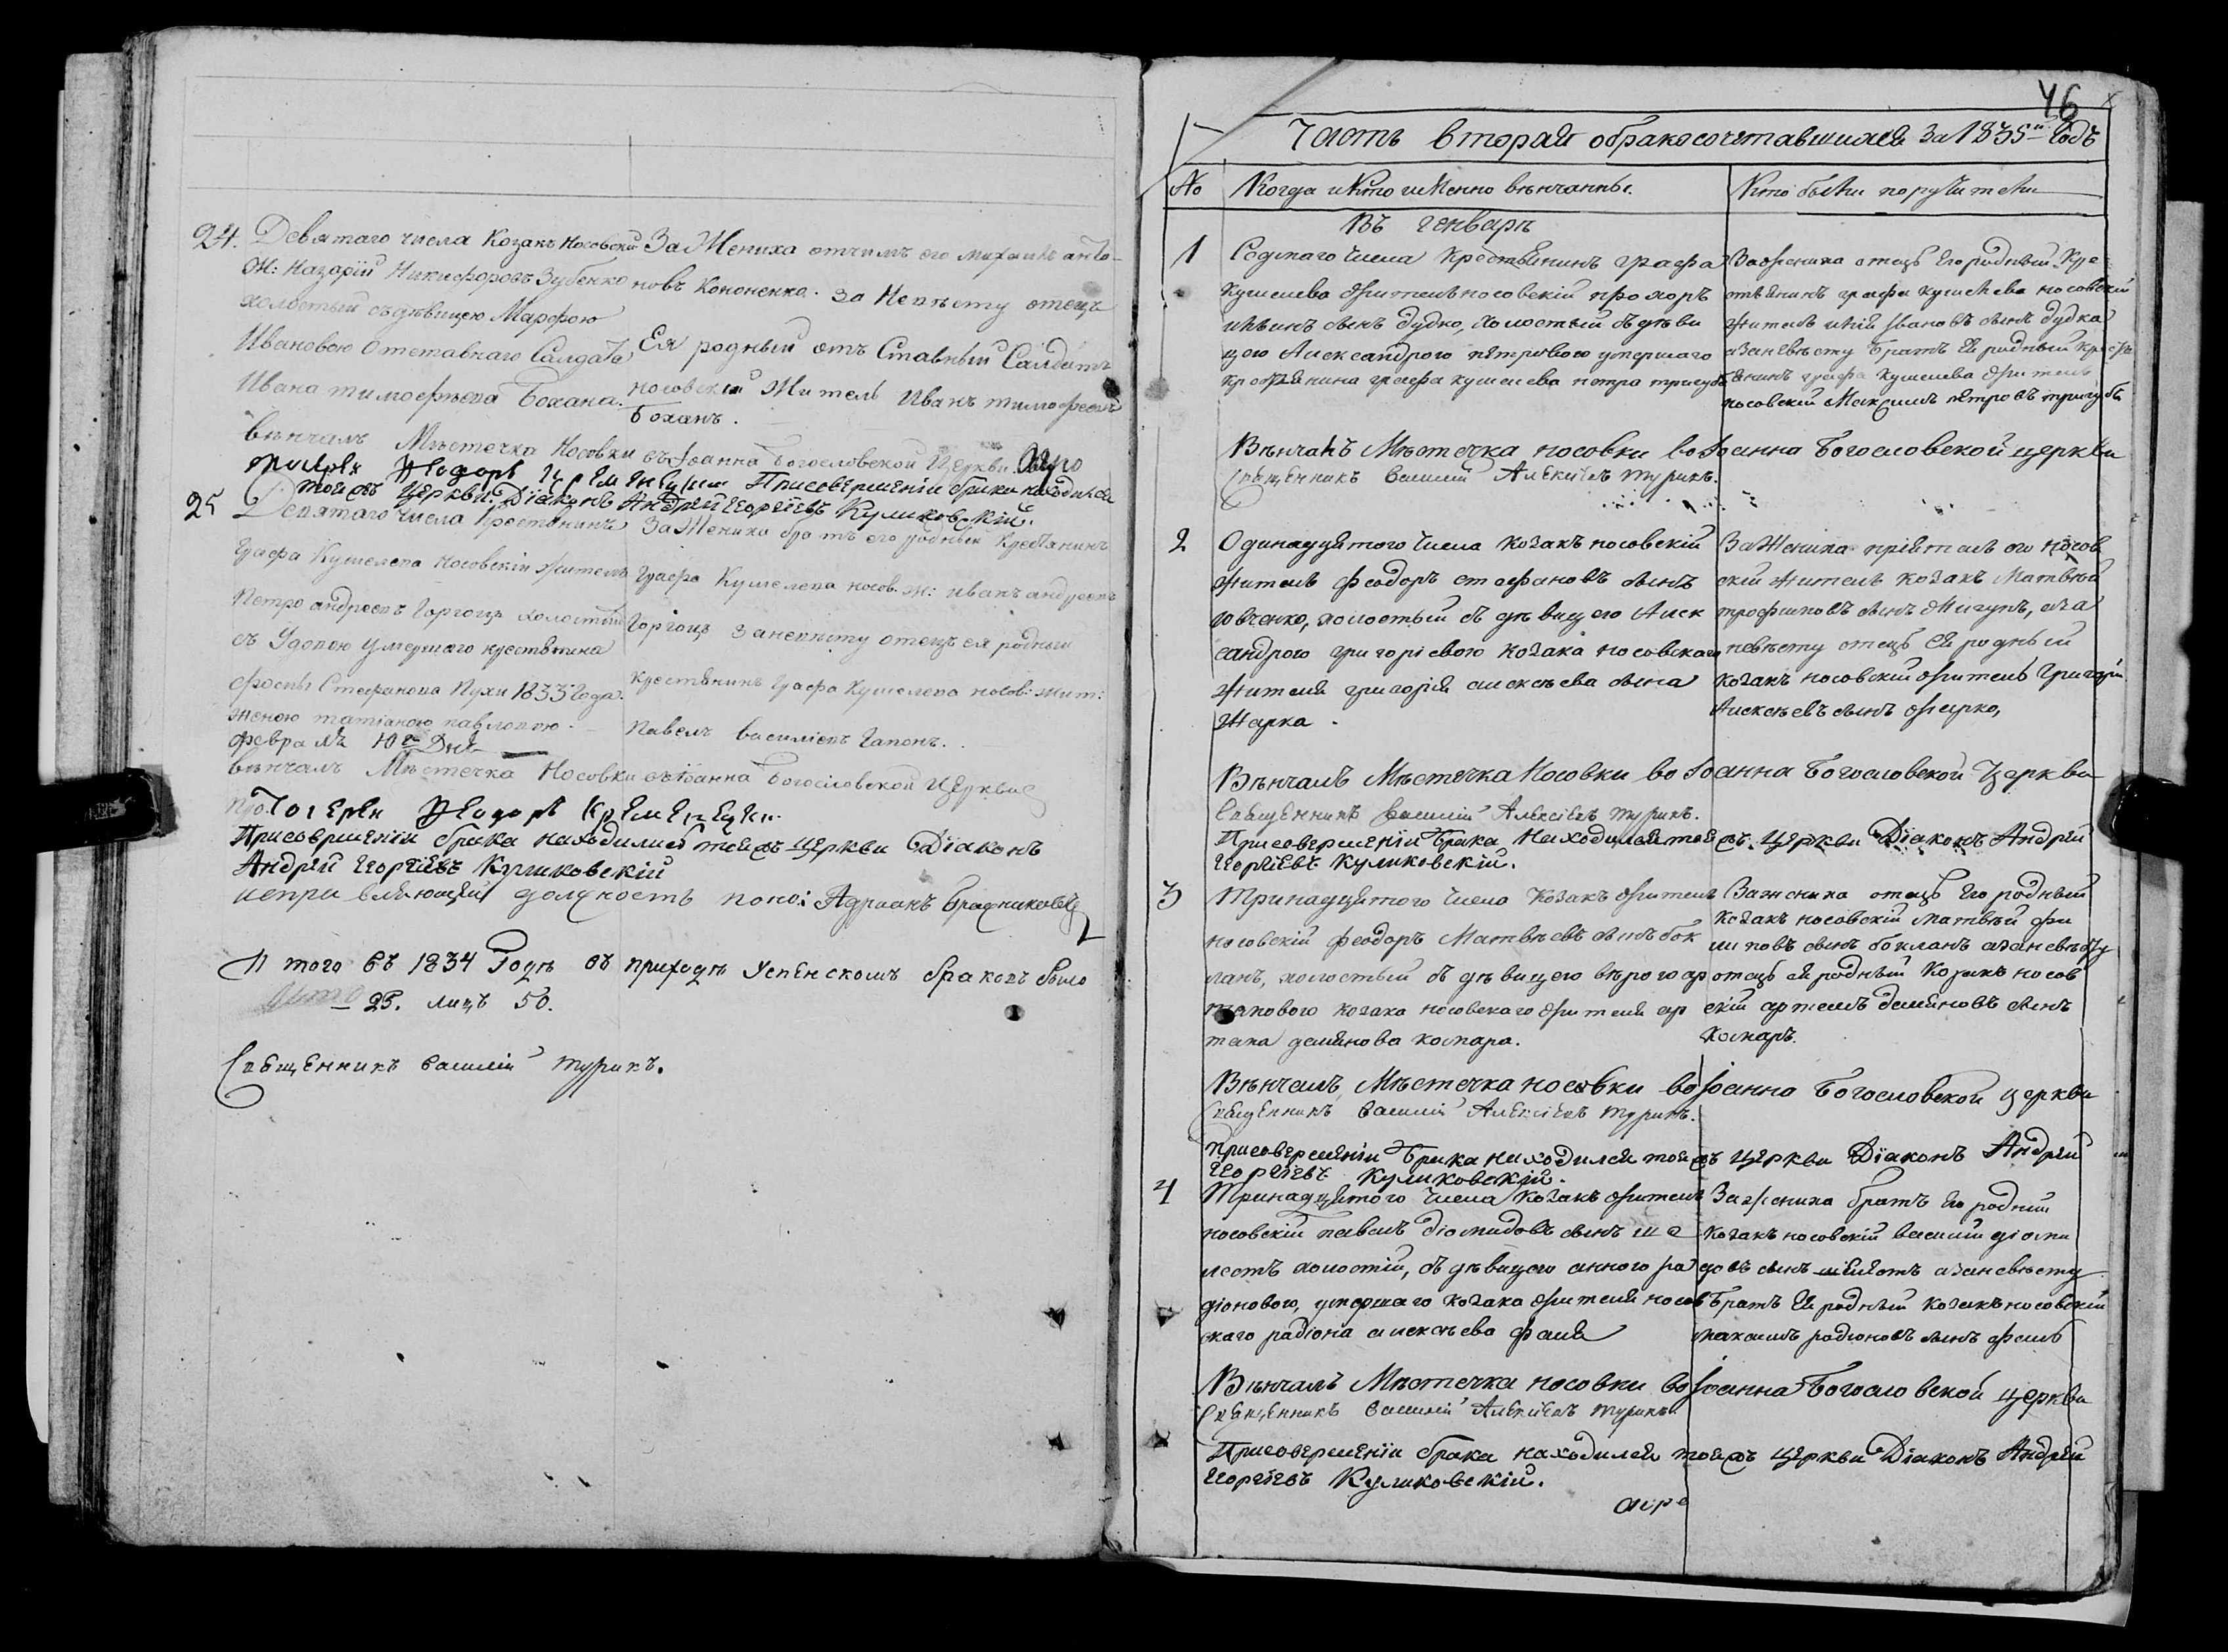 24. Девятаго числа Козакъ Носовский
Ж: Назарій Никифоровъ Зубенко
холостый съ дѣвицею Марфою
Ивановою отставнаго Салдата
Ивана тимофѣева Бохана.
За Жениха отчимъ его
новъ Кононенко. За Невѣсту отецъ
Ея родный отъ Ставный Салдатъ
носовскій Житель Иванъ тимофеевъ
Боханъ.
вѣнчалъ Мѣстечка Носовки съ Іоанна Богословской Церкви
При совершеніи брака находился
тоя жъ Церкви Діаконъ Андрей Георгіевъ Куликовскій.
25 Девятаго числа Крестянинъ
Графа Кушелева Носовскій житель
Петро андреевъ Горгоцъ холостый
съ Удовою умершаго крестянина
Стефанова Пухи 1833 Года.
женою татіаною павловою
февраля 10го Дня
За Жениха братъ его родный Крестянинъ
Графа Кушелева носов. ж: иванъ андреевъ
Горгоцъ За невѣсту отецъ ея родный
крестянинъ Графа Кушелева носов: жит:
Павелъ василіевъ Гапонъ.
вѣнчалъ Мѣстечка Носовки съ Іоанна Богословской Церкви
При совершеніи брака находился тоя жъ церкви Діаконъ
Андрей Георгіевъ Куликовскій
должность поно: Адріанъ
И того въ 1834 Годѣ въ приходѣ Успенскомъ браковъ было
25. лицъ 50.
Священникъ Василій Турикъ.
46
Часть вторая обракосочетавшихся За 1835й Годъ
No Когда и Кто именно вѣнчанны. Кто были поручители
Въ генварѣ
1 Седмаго Числа Крестянинъ графа
Кушелева житель носовскій прохоръ
иліинъ сынъ дудко, холостый съ дѣви
цою Александрою петровою умершаго
крестянина графа кушелева петра тригуба
За жениха отецъ Его родный Кре
стянинъ графа кушелева носовскій
житель илія Ивановъ сынъ дудка
а за невѣсту Братъ Ея родный крестя
янинъ графа Кушелева житель
носовскій Максимъ петровъ тригубъ
Вѣнчалъ Мѣстечка носовки во Іоанна Богословской церкви
Священникъ Василій Алексіевъ Турикъ.
2 Одинадцятого Числа Козакъ носовскій
житель феодоръ стефановъ сынъ
холостый съ дѣвицею Алек
сандрою григоріевою козака носовскаго
жителя григорія алексѣева сына
Жарка.
За Жениха пріятель его Носов
скій житель козакъ Матвѣй
трофимовъ сынъ Жигунъ, а за
невѣсту отецъ Ея родный
козакъ носовскій житель Григорій
Алексѣевъ сынъ жарко,
Вѣнчалъ Мѣстечка Носовки во Іоанна Богословской Церкви
Священникъ Василій Алексіевъ Турикъ.
При совершеніи Брака Находился тоя жъ Церкви Діаконъ Андрей
Георгіевъ Куликовскій.
3 Тринадцятого Числа Козакъ житель
носовскій феодоръ Матвѣевъ сынъ бок
ланъ, холостый съ дѣвицею вѣрою ар
темовою козака носовскаго жителя ар
тема деміянова комара.
За жениха отецъ Его родный
Козакъ носовскій Матвѣй фи
липовъ сынъ бокланъ а за невѣсту
отецъ ея родный Козакъ носов
скій артемъ деміяновъ сынъ
Комаръ.
Вѣнчалъ Мѣстечка носовки во Іоанна Богословской церкви
Священникъ Василій Алексіевъ Турикъ.
При совершеніи Брака находился тоя жъ церкви Діаконъ Андрей
Георгіевъ Куликовскій.
4 Тринадцятого Числа Козакъ житель
носовскій павелъ діомидовъ сынъ ше
лестъ холостій, съ дѣвицею анною ра
діоновою, умершаго козака жителя носов
скаго радіона алексѣева фаля
За жениха братъ Его родній
Козакъ носовскій василій діоми
довъ сынъ а за невѣсту
Братъ Ея родный Козакъ носовскій
максимъ радіоновъ сынъ фаль
Вѣнчалъ Мѣстечка носовки во Іоанна Богословской церкви
Священникъ Василій Алексіевъ Турикъ.
При совершеніи брака находился тоя жъ церкви Діаконъ Андрей
Георгіевъ Куликовскій.